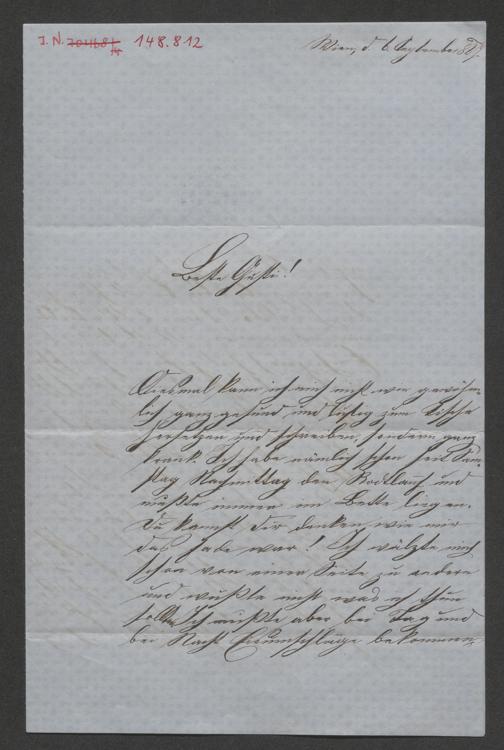 I. N. 70468/4 148.812
Wien, d. 6. September
Beste Gusti!
Diesmal kann ich mich nicht wie gewöhn-
lich ganz gesund und lustig zum Tische
hersetzen und schreiben, sondern ganz
krank. Ich habe nämlich schon seit Sam-
stag Nachmittag den Rothlauf und
mußte immer im Bette liegen.
Du kannst dir denken wie mir
das fade war! Ich wälzte mich
schon von einer Seite zu andere
und wußte nicht was ich thun
sollte. Ich mußte aber bei Tag und
bei Nacht Eisumschläge bekommen,